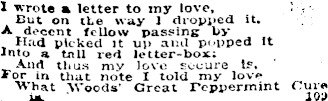 I wrote a letter to my love,
But on the way I dropped it.
A decent fellow passing by
Had picked it up and popped it
Into a tall red letter-box:
And thus my love secure is,
For in that note I told my love
What Woods' Great Peppermint Cure
109